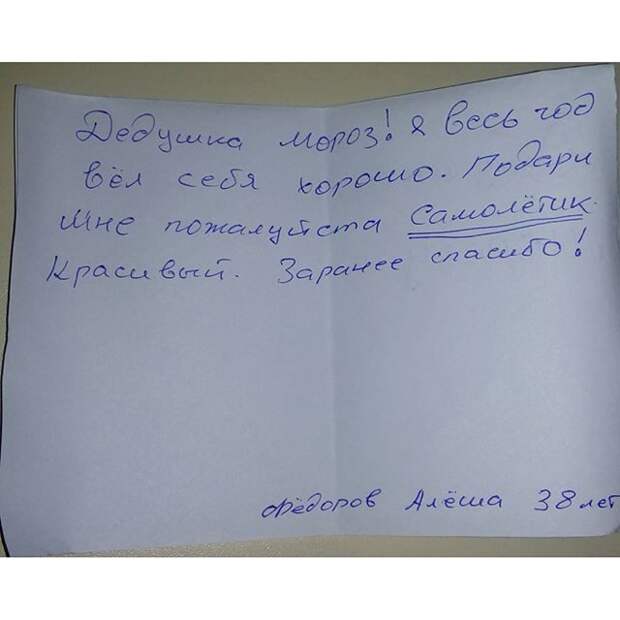 Дедушка мороз! Я весь год
вёл себя хорошо. Подари
мне пожалуйста самолётик.
Красивый. Заранее спасибо!
Фёдоров Алёша 38 лет